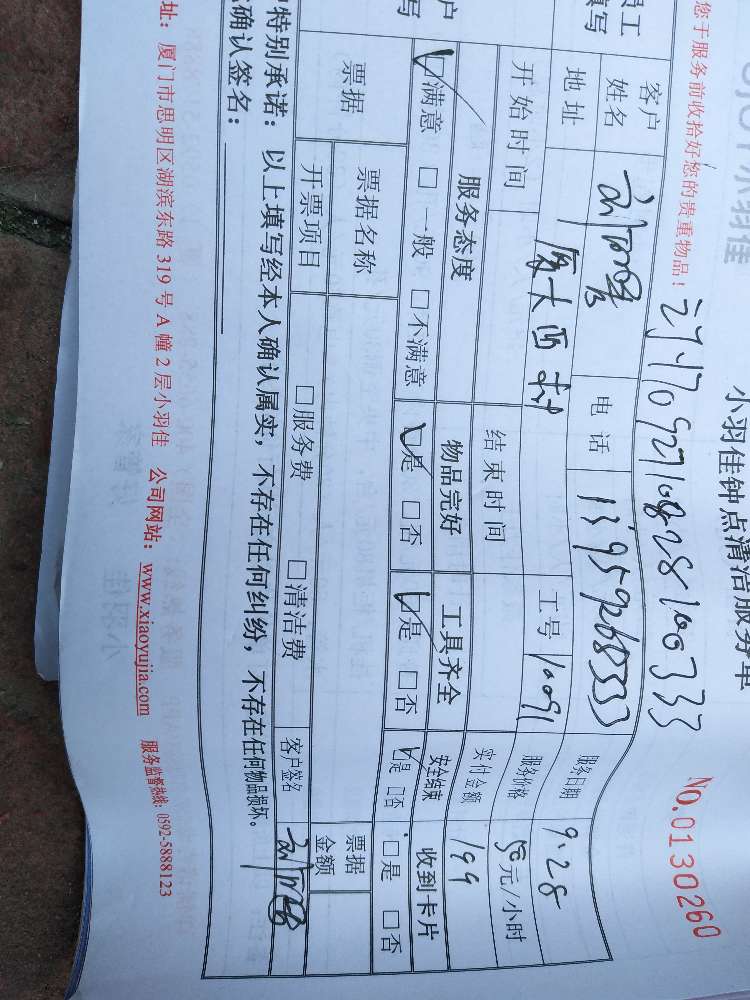 小羽佳钟点清洁服务单
No.0130260
您于服务前收拾好您的贵重物品！
客户姓名
电话
服务日期 9.28
地址 厦大西村
工号 10091
服务价格 50元/小时
开始时间
结束时间
实付金额 199
服务态度
物品完好
工具齐全
安全结束
收到卡片
☑满意 □一般 □不满意
☑是 □否
☑是 □否
☑是 □否
□是 □否
票据
票据名称
开票项目
□服务费 □清洁费
票据金额
特别承诺：以上填写经本人确认属实，不存在任何纠纷，不存在任何物品损坏。
客户签名
确认签名：
址：厦门市思明区湖滨东路 319 号 A 幢 2 层小羽佳 公司网站：www.xiaoyujia.com 服务监督热线：0592-5888123